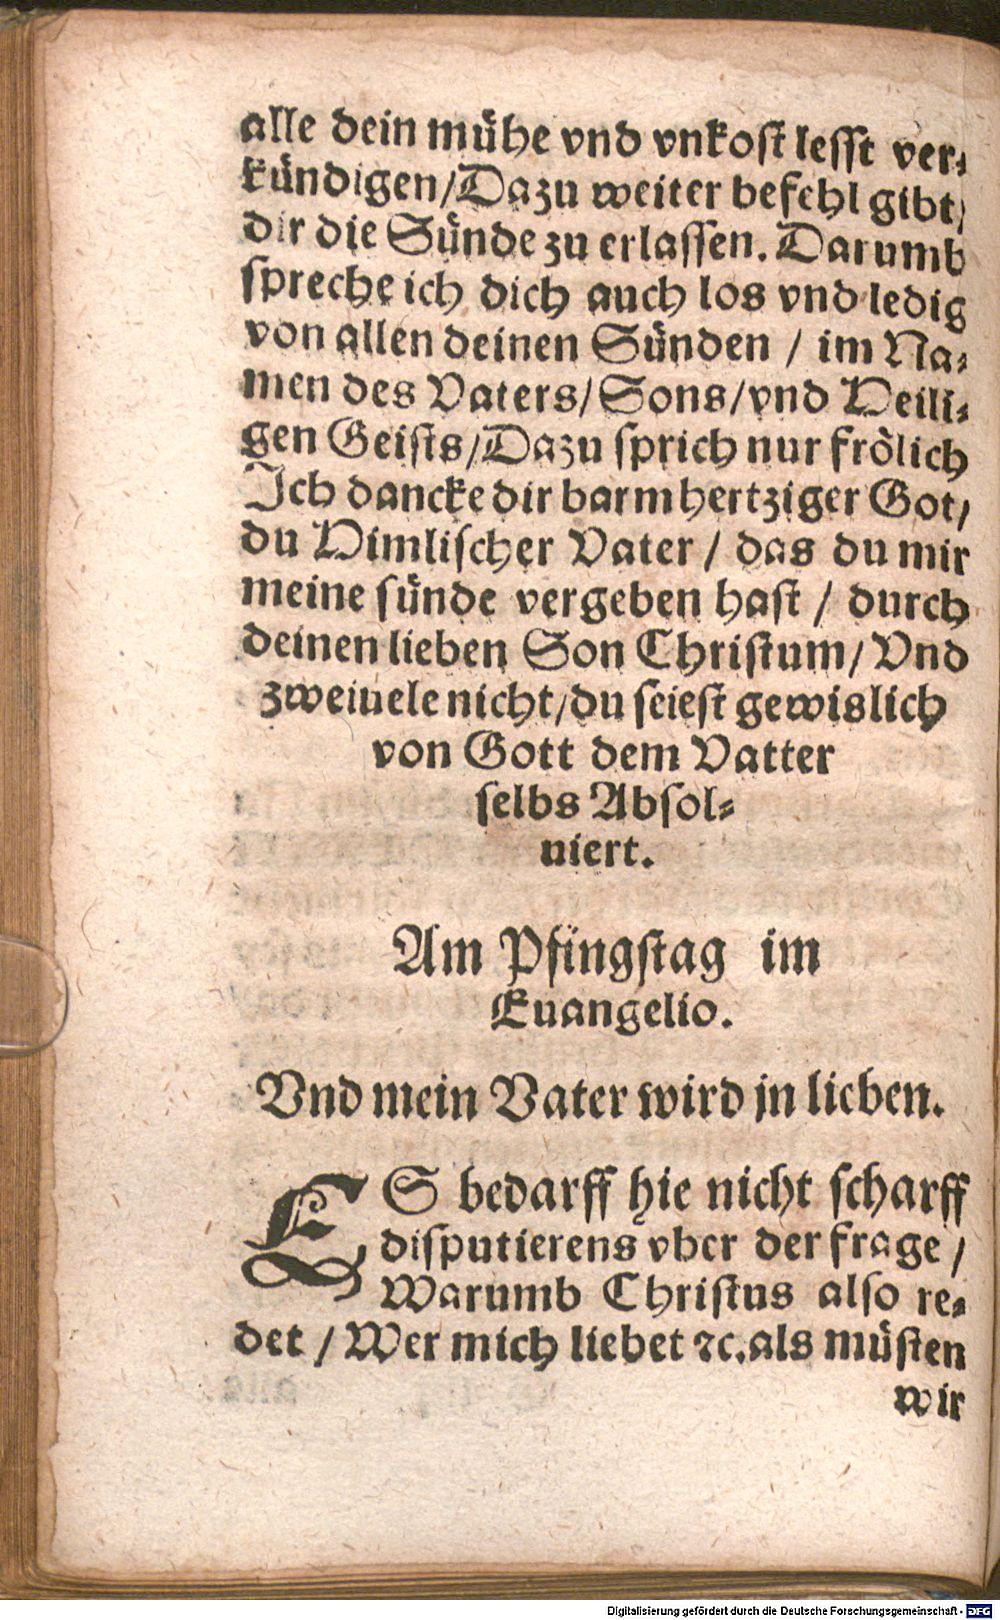 alle dein mühe vnd vnkost lesst ver-
kündigen/Dazu weiter befehl gibt/
dir die Sünde zu erlassen. Darumb
spreche ich dich auch los vnd ledig
von allen deinen Sünden / im Na-
men des Vaters/Sons/vnd Heili-
gen Geists/Dazu sprich nur frölich
Ich dancke dir barmhertziger Got/
du Himlischer Vater / das du mir
meine sünde vergeben hast / durch
deinen lieben Son Christum/Vnd
zweiuele nicht/du seiest gewislich
von Gott dem Vatter
selbs Absol-
uiert.
Am Pfingstag im
Euangelio.
Vnd mein Vater wird jn lieben.
ES bedarff hie nicht scharff
disputierens vber der frage /
Warumb Christus also re-
det / Wer mich liebet ꝛc. als müsten
wir
Digitalisierung gefördert durch die Deutsche Forschungsgemeinschaft - DFG